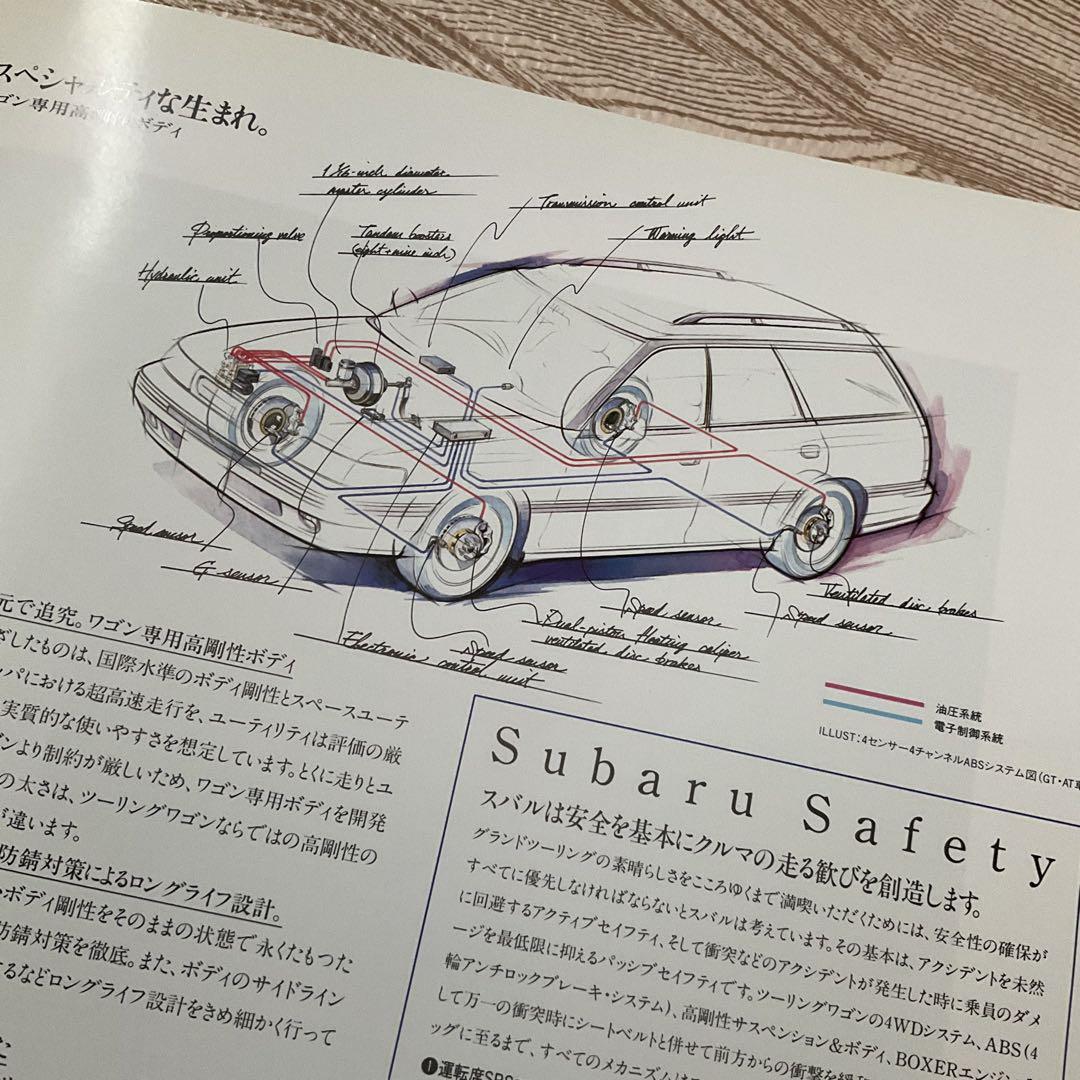 スペシャルティな生まれ。
ゴン専用高剛性ボディ
1 1/16-inch diameter
master cylinder
Transmission control unit
Proportioning valve
Tandem boosters
(eight+nine inch)
Warning light
Hydraulic unit
Speed sensor
G sensor
Electronic control unit
Speed sensor
Dual-piston floating caliper
ventilated disc brakes
Speed sensor
Speed sensor
Ventilated disc brakes
油圧系統
電子制御系統
ILLUST:4センサー4チャンネルABSシステム図(GT・AT車
元で追究。ワゴン専用高剛性ボディ
ざしたものは、国際水準のボディ剛性とスペースユーテ
パにおける超高速走行を、ユーティリティは評価の厳
実質的な使いやすさを想定しています。とくに走りとユ
ンより制約が厳しいため、ワゴン専用ボディを開発
の太さは、ツーリングワゴンならではの高剛性の
が違います。
防錆対策によるロングライフ設計。
ボディ剛性をそのままの状態で永くたもった
防錆対策を徹底。また、ボディのサイドライン
するなどロングライフ設計をきめ細かく行って
Subaru Safety
スバルは安全を基本にクルマの走る歓びを創造します。
グランドツーリングの素晴らしさをこころゆくまで満喫いただくためには、安全性の確保が
すべてに優先しなければならないとスバルは考えています。その基本は、アクシデントを未然
に回避するアクティブセイフティ、そして衝突などのアクシデントが発生した時に乗員のダメ
ージを最低限に抑えるパッシブセイフティです。ツーリングワゴンの4WDシステム、ABS(4
輪アンチロックブレーキ・システム)、高剛性サスペンション&ボディ、BOXERエンジン
して万一の衝突時にシートベルトと併せて前方からの衝撃を緩和
ッグに至るまで、すべてのメカニズムは
❶運転席SRS